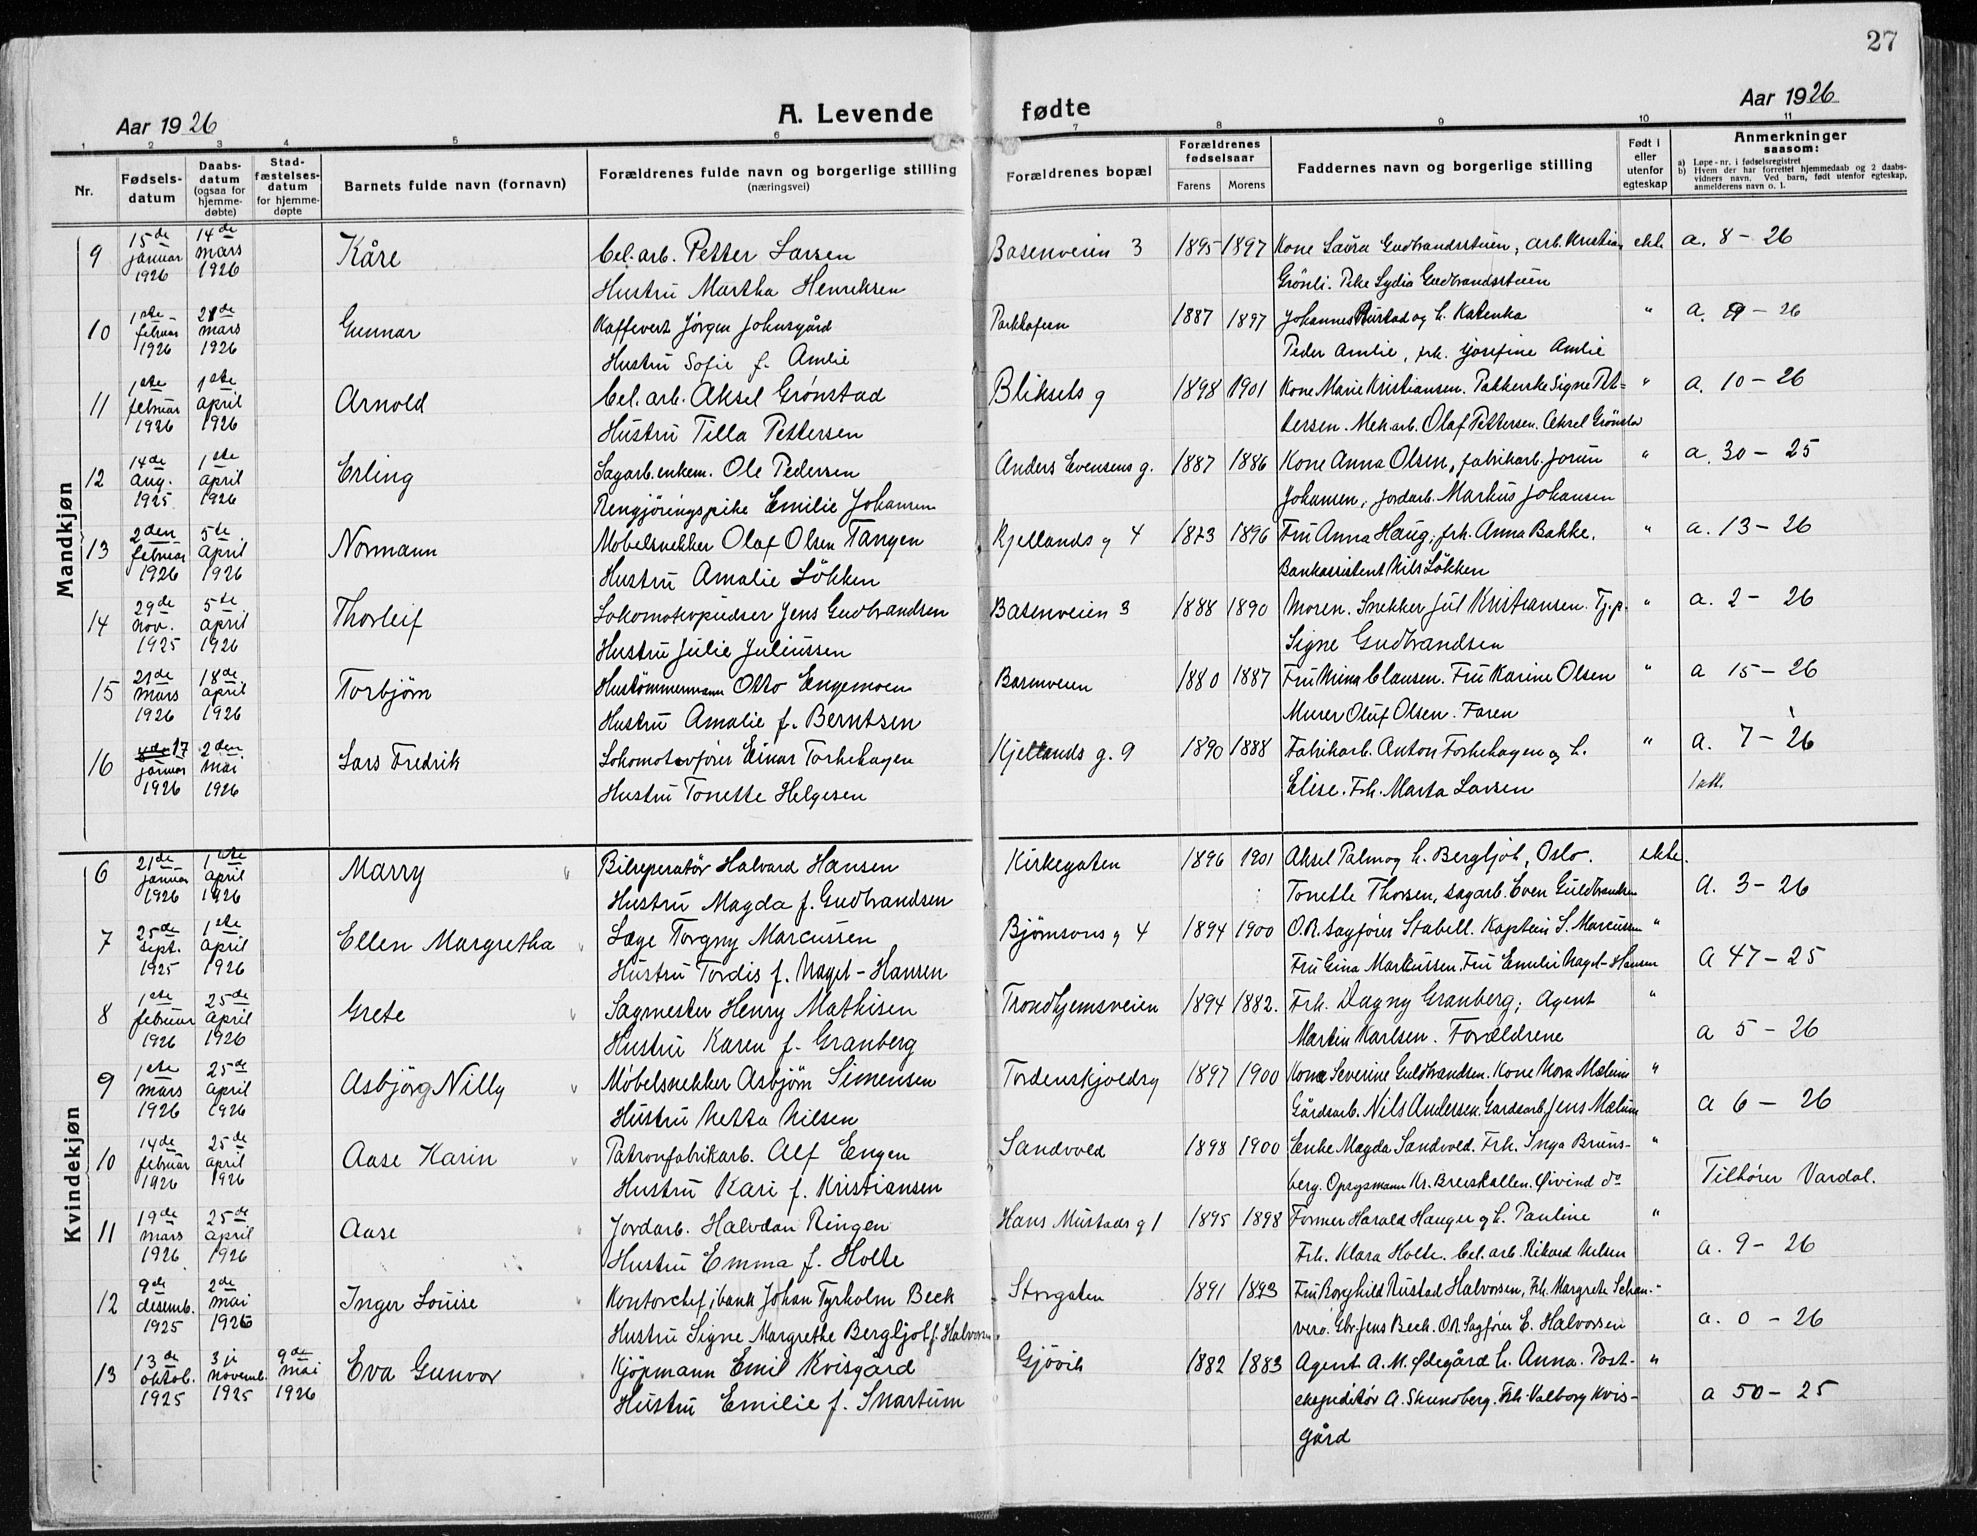 27
Aar 1926 A. Levende fødte Aar 1926
1 2 3 4 5 6 7 8 9 10 11
Nr. Fødsels-datum Daabs-datum (ogsaa for hjemme-døbte) Stad-fæstelses-datum for hjemme-døpte Barnets fulde navn (fornavn) Forældrenes fulde navn og borgerlige stilling (næringsvei) Forældrenes bopæl Forældrenes fødselsaar Farens Morens Faddernes navn og borgerlige stilling Født i eller utenfor egteskap Anmerkninger saasom:
a) Løpe-nr. i fødselsregistret
b) Hvem der har forrettet hjemmedaab og 2 daabs-vidners navn. Ved barn, født utenfor egteskap, anmelderens navn o. l.
Mandkjøn
9 15de januar 1926 14de mars 1926 Kåre Cel. arb. Petter Larsen Basenveien 3 1895 1897 Kone Laura Gudbrandsstuen, arb. Kristian ekte a. 8 - 26
Hustru Martha Henriksen Grönli. Pike Lydia Gudbrandsstuen
10 1ste februar 1926 28de mars 1926 Gunnar Kaffevert Jørgen Johnsgård Parkkafeen 1887 1897 Johannes Rustad og h. Katenka " a. 9 - 26
Hustru Sofie f. Amlie Peder Amlie, frk. Josefine Amlie
11 1ste februar 1926 1ste april 1926 Arnold Cel. arb. Aksel Grønstad Bliksets g 1898 1901 Kone Marie Kristiansen. Pakkerske Signe Pet= " a. 10 - 26
Hustru Tilla Pettersen tersen. Mek. arb. Olaf Pettersen. Aksel Grönsta
12 14de aug. 1925 1ste april 1926 Erling Sagarb. enkem. Ole Pedersen Anders Evensens g. 1887 1886 Kone Anna Olsen, fabrikarb. Jorun " a. 30 - 25
Rengjøringspike Emilie Johansen Johansen, jordarb. Markus Johansen
13 2den februar 1926 5te april 1926 Normann Møbelsnekker Olaf Olsen Tangen Kjellands g 4 1873 1896 Fru Anna Haug, frk. Anna Bakke. " a. 13 - 26
Hustru Amalie Løkken Bankassistent Nils Løkken
14 29de nov. 1925 5te april 1926 Thorleif Lokomotivpudser Jens Gudbrandsen Basenveien 3 1888 1890 Moren. Snekker Jul Kristiansen. Tj. p. " a. 2 - 26
Hustru Julie Juliussen Signe Gudbrandsen
15 21de mars 1926 18de april 1926 Torbjørn Hustömmermann Otto Engemoen Basenveien 1880 1887 Fru Mina Clausen. Fru Karine Olsen " a 15 - 26
Hustru Amalie f. Berntsen Murer Oluf Olsen. Faren
16 17 januar 1926 2den mai 1926 Lars Fredrik Lokomotivfører Einar Torkehagen Kjellands g. 9 1890 1888 Fabrikarb. Anton Torkehagen og h. " a. 7 - 26
Hustru Tonette Helgesen Elise. Frk. Marta Larsen 1 att.
Kvindekjøn
6 21de januar 1926 1ste april 1926 Marry Bilreperatör Halvard Hansen Kirkegaten 1896 1901 Aksel Palm og h. Bergljot, Oslo. ekte.
Hustru Magda f. Gudbrandsen Tonette Thorsen, sagarb. Even Guldbrandsen a. 3 - 26
7 25de sept. 1925 1ste april 1926 Ellen Margretha Læge Torgny Marcussen Bjørnsons g 4 1894 1900 O.R. sagfører Stabell. Kaptein S. Marcussen "
Hustru Tordis f. Naget-Hansen Fru Gina Markussen. Fru Emilie Naget-Hansen a 47 - 25
8 1ste februar 1926 25de april 1926 Grete Sagmester Henry Mathisen Trondhjemsveien 1894 1882. Frk. Dagny Granberg; Agent "
Hustru Karen f. Granberg Martin Karlsen. Forældrene a 5 - 26
9 1ste mars 1926 25de april 1926 Asbjörg Nilly Møbelsnekker Asbjørn Simensen Tordenskjoldsg 1897 1900 Kone Severine Guldbrandsen. Kone Nora Mælum "
Hustru Netta Nilsen Gårdsarb. Nils Andersen. Gardsarb. Jens Mælum a 6 - 26
10 14de februar 1926 25de april 1926 Aase Karin Patronfabrikarb. Alf Engen Sandvold 1898 1900 Enke Magda Sandvold. Frk. Inga Bruns- "
Hustru Kari f. Kristiansen berg. Opsynsmann Kr. Breiskallen. Øivind do Tilhører Vardal.
11 19de mars 1926 25de april 1926 Aase Jordarb. Halvdan Ringen Hans Mustads g 1 1895 1898 Former Harald Hauger og h. Pauline "
Hustru Emma f. Holte Frk. Klara Holte. Cel. arb. Rikard Nelsen a. 9 - 26
12 9de desemb. 1925 2de mai 1926 Inger Louise Kontorchef i bank Johan Tyrholm Beck Storgaten 1891 1893 Fru Borghild Rustad Halvorsen, Frk. Margrete Schau- "
Hustru Signe Margrethe Bergljot f. Halvorsen vero. Gbr. Jens Beck. O.R. Sagfører E. Halvorsen a. 0 - 26
13 13de oktob. 1925 3je novemb. 1925 9de mai 1926 Eva Gunvor Kjöpmann Emil Kvisgård Gjövik 1882 1883 Agent A. M. Ødegård h. Anna. Post- "
Hustru Emilie f. Snartum ekspeditör A. Skundberg. Frk. Valborg Kvis- a 50 - 25
gård